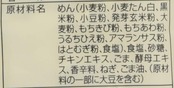 原材料名 めん(小麦粉、小麦たん白、黒
米粉、小豆粉、発芽玄米粉、
大麦粉、もちきび粉、もちあわ粉、
うるちひえ粉、アマランサス粉、
はとむぎ粉、食塩)、食塩、砂糖、
チキンエキス、ごま、酵母エキ
ス、香辛料、ねぎ、ごま油、(原材料
の一部に大豆を含む)